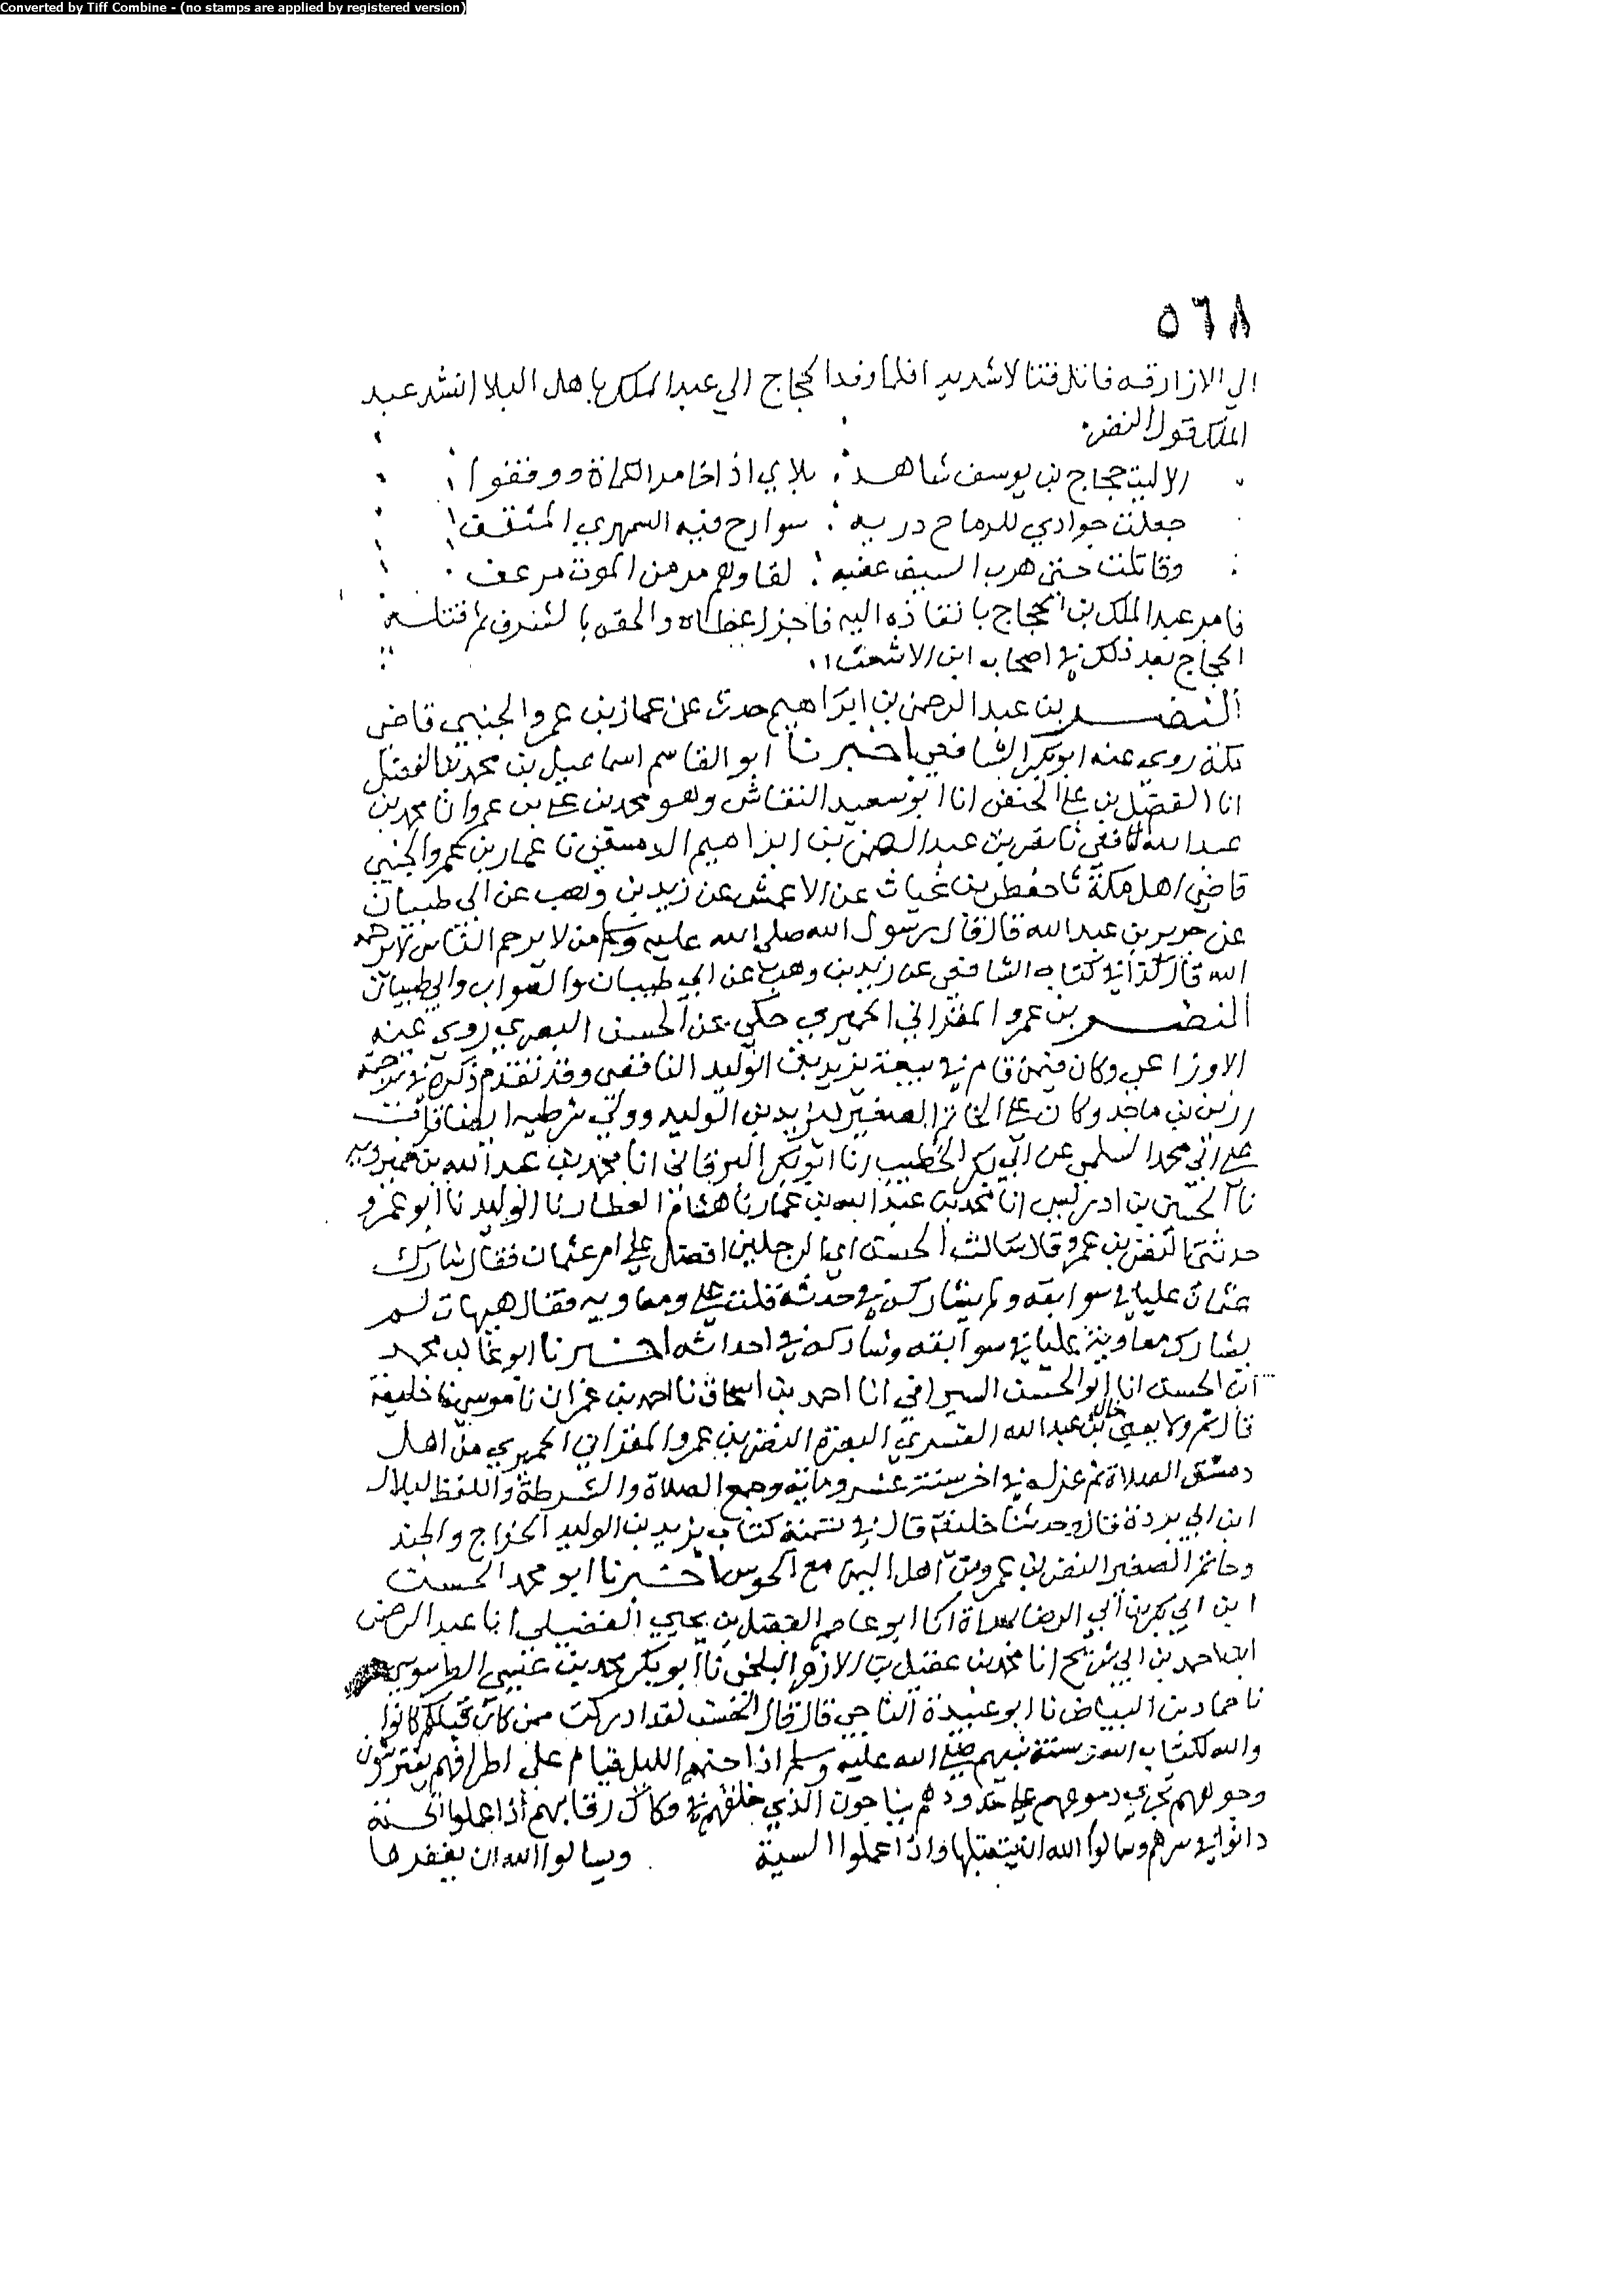 Converted by Tiff Combine - (no stamps are applied by registered version)
٥٦٨
الي الازارقه فابلا قتالا شديدا فلما وفد الحجاج الي عبد الملك باهل البلا انشد عبد
الملك قول النضر
الا ليت حجاج بن يوسف شاهد بلاي اذا خام الكماة ووقفوا
جعلت جوادي للرماح دريه سوارح فيه السمهري المثقف
وقاتلت حتى هرب السيف عقبه لقاوهم من الموت مرعف
فامر عبد الملك بن الحجاج بانفاذه اليه فاجزل عطاه والحقه بالشرف ثم قتله
الحجاج بعد ذلك في اصحاب ابن الاشعث
النضر بن عبد الرحمن بن ابراهيم حدث عن عمار بن عمرو الجنبي قاضي
مكة روى عنه ابو بكر الشافعي اخبرنا ابو القاسم اسماعيل بن محمد بن الفضل
انا الفضل بن علي الحنفي انا ابو سعيد النقاش وهو محمد بن علي بن عمرو انا محمد بن
عبد الله الشافعي نا نضر بن عبد الرحمن بن ابراهيم الدمشقي نا عمار بن عمرو الجنبي
قاضي اهل مكة نا حفص بن غياث عن الاعمش عن زيد بن وهب عن ابي طبيان
عن جرير بن عبد الله قال قال رسول الله صلى الله عليه وسلم من لا يرحم الناس لا يرحمه
الله قال كذا في كتاب الشافعي عن زيد بن وهب عن ابي طبيان والصواب وابي طبيان
النضر بن عمرو المقراني الحميري حكي عن الحسن البصري روى عنه
الاوزاعي وكان فيمن قام في بيعة يزيد بن الوليد الناقص وقد تقدم ذكره في ترجمة
رزين بن ماجد وكان على الخاتم الصغير ليزيد بن الوليد وولي شرطته ايضا قرات
على ابي محمد السلمي عن ابي بكر الخطيب انا ابو بكر البرقاني انا محمد بن عبد الله بن خميرويه
نا الحسين بن ادريس انا محمد بن عبد الله بن عمار نا هشام العطار نا الوليد نا ابو عمرو
حدثني النضر بن عمرو قال سالت الحسن اي الرجلين افضل علي ام عثمان فقال شارك
عثمان عليا في سوابقه ولم يشاركه في حدثه قلت علي ومعاوية فقال هيهات لم
يشارك معاوية عليا في سوابقه وشاركه في احداثه اخبرنا ابو غالب محمد
ابن الحسن انا ابو الحسن السيرافي انا احمد بن اسحاق نا احمد بن عمران نا موسى نا خليفة
قال ثم ولا يعني خالد بن عبد الله القسري البصرة النضر بن عمرو المقراني الحميري من اهل
دمشق الصلاة ثم عزله في اخر سنة عشر ومايه وجمع الصلاة والشرطة واللفظ لبلال
ابن ابي بردة قال وحدثنا خليفة قال في تسمية كتاب يزيد بن الوليد الخراج والجند
وخاتم الصغير النضر بن عمرو من اهل اليمن مع الحرس اخبرنا ابو محمد الحسن
ابن ابي بكر بن ابي الرضا بهراة انا ابو عاصم الفضل بن يحيي الفضيلي انا عبد الرحمن
ابن احمد بن ابي شريح انا محمد بن عقيل بن الازهر البلخي نا ابو بكر محمد بن عيسى الطرسوسي
نا حماد بن البياض نا ابو عبيدة الناجي قال قال الحسن لقد ادركت ممن كان قبلكم كانوا
والله لكتاب الله وسنة نبيهم صلى الله عليه وسلم اذا جنهم الليل قيام على اطرافهم يفترشون
وجوههم تجري دموعهم على خدودهم يناجون الذي خلقهم في فكاك رقابهم اذا عملوا الحسنة
دابوا في سرهم وسالوا الله ان يتقبلها واذا عملوا السية وسالوا الله ان يغفرها